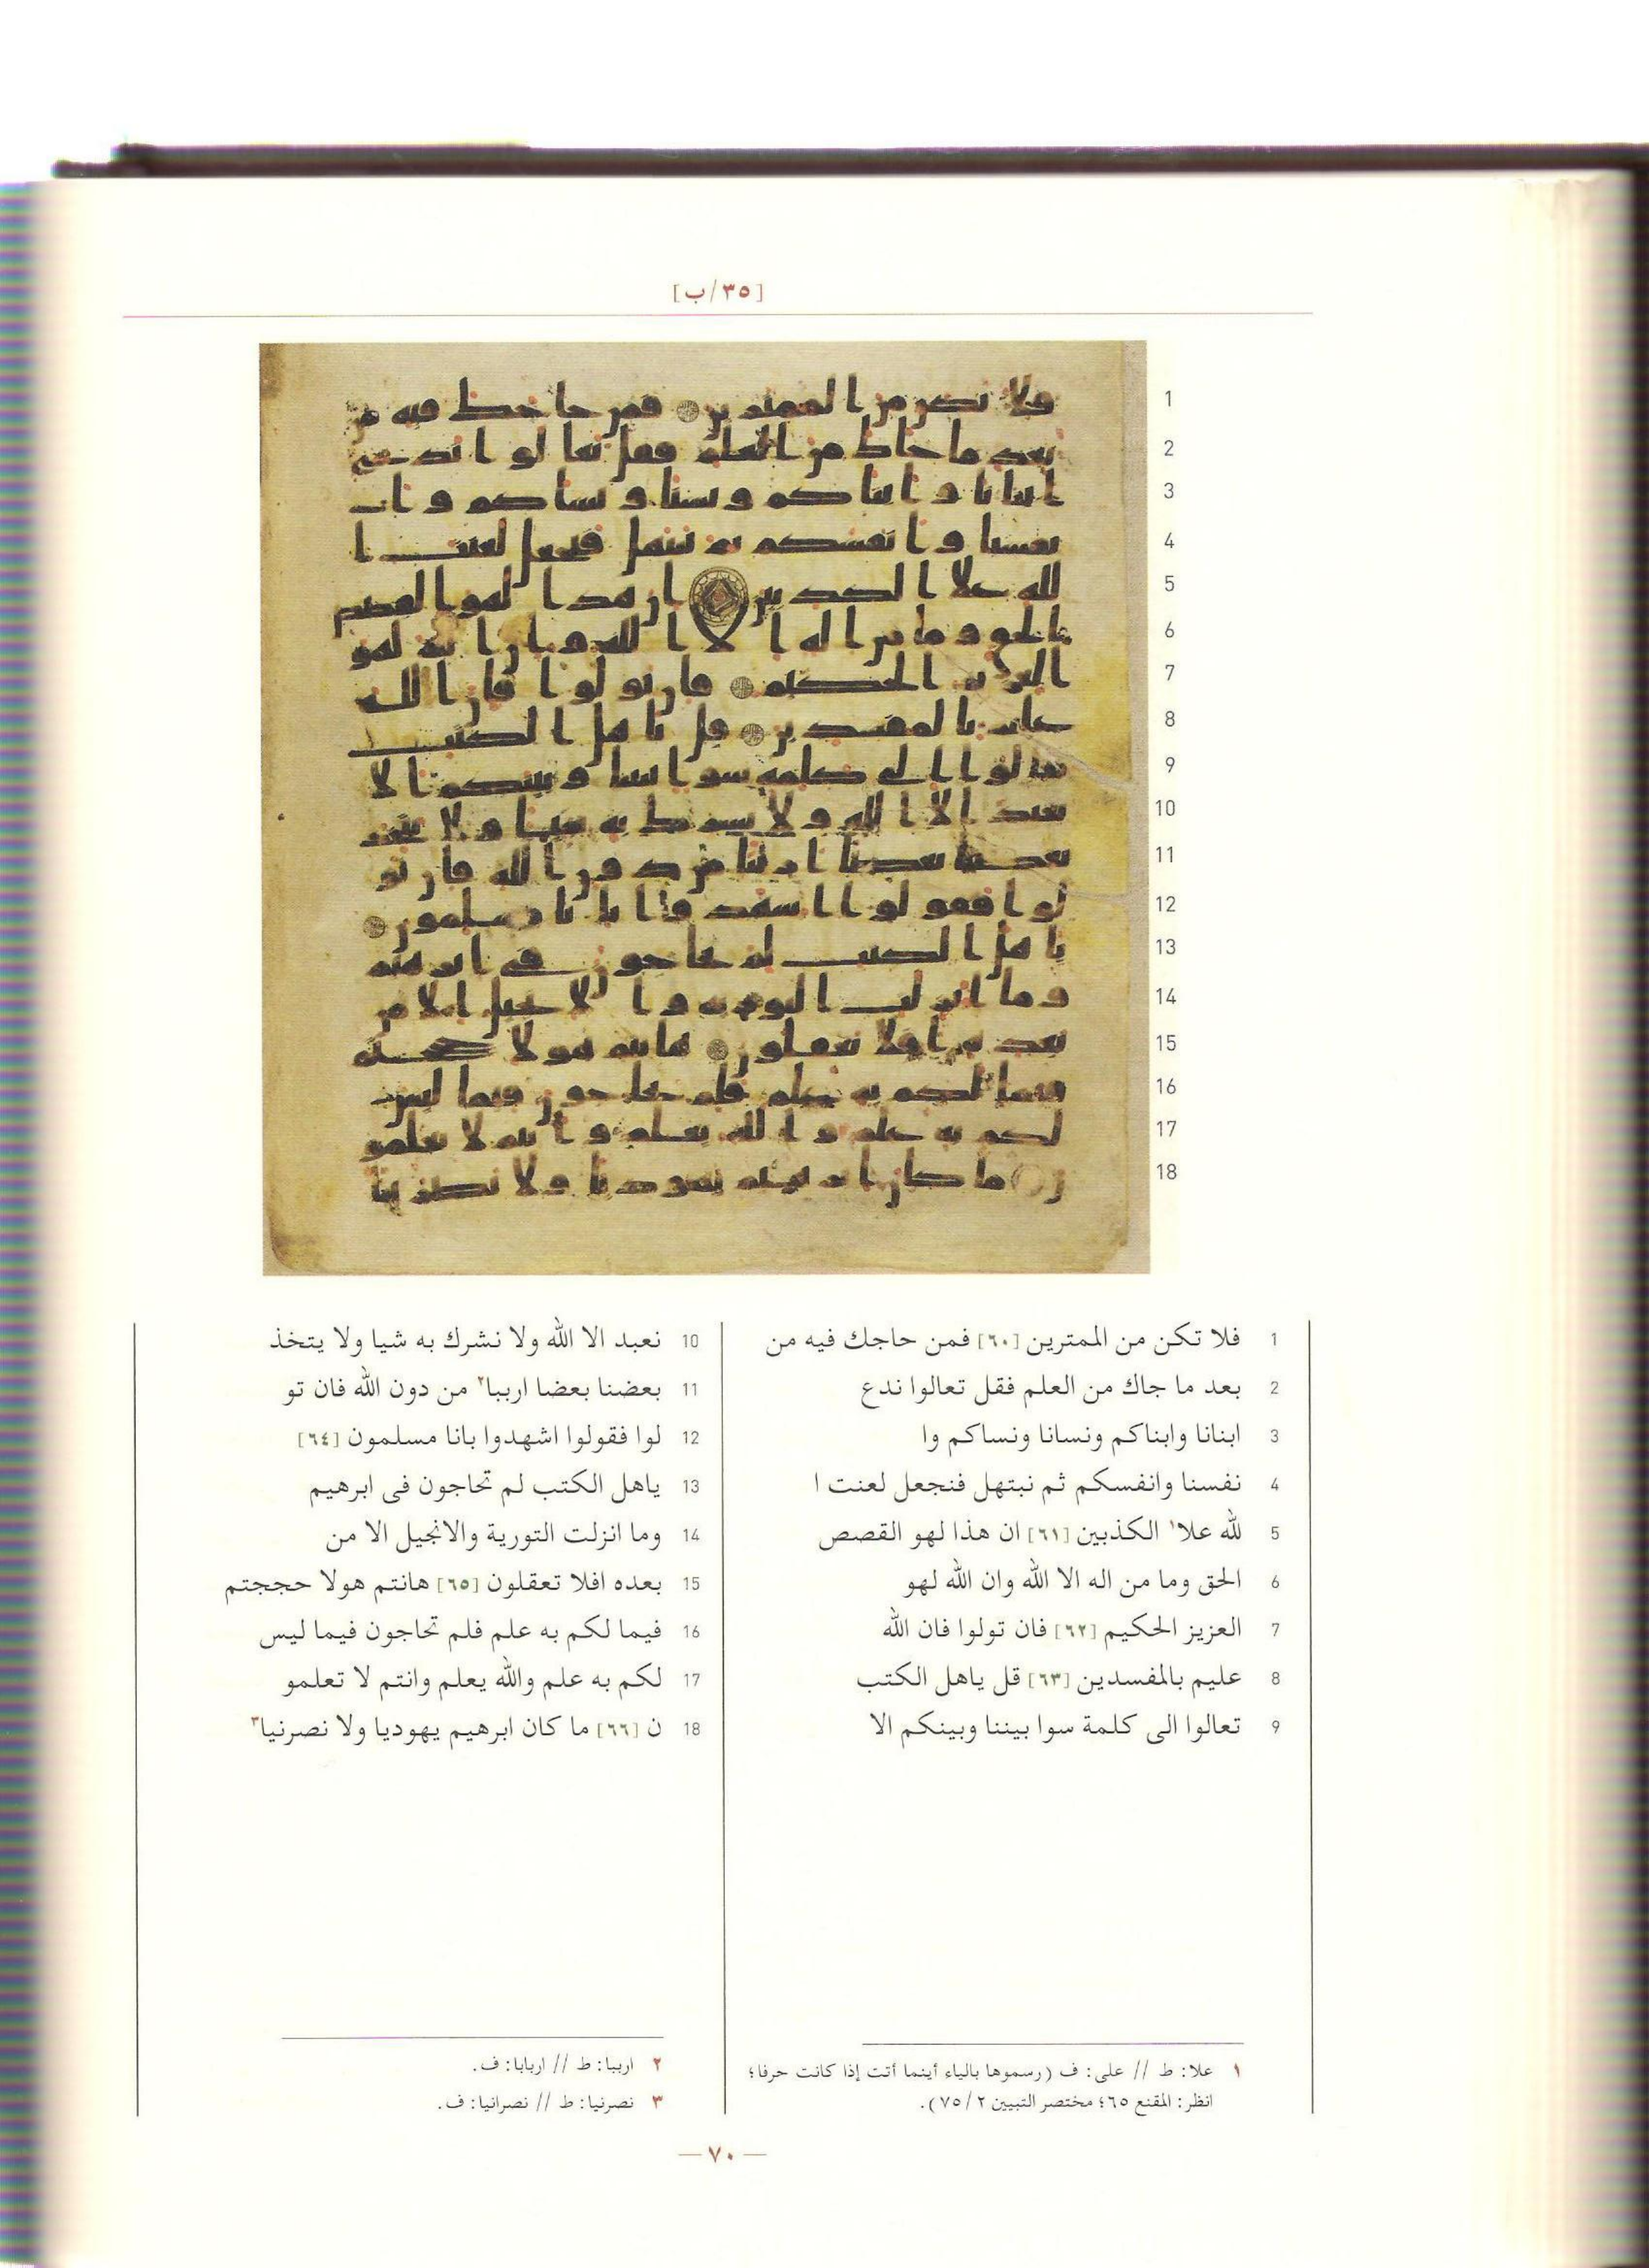 [٣٥/ب]
1
2
3
4
5
6
7
8
9
10
11
12
13
14
15
16
17
18
1 فلا تكن من الممترين [٦٠] فمن حاجك فيه من
2 بعد ما جاك من العلم فقل تعالوا ندع
3 ابنانا وابناكم ونسانا ونساكم وا
4 نفسنا وانفسكم ثم نبتهل فنجعل لعنت ا
5 لله علا١ الكذبين [٦١] ان هذا لهو القصص
6 الحق وما من اله الا الله وان الله لهو
7 العزيز الحكيم [٦٢] فان تولوا فان الله
8 عليم بالمفسدين [٦٣] قل ياهل الكتب
9 تعالوا الى كلمة سوا بيننا وبينكم الا
10 نعبد الا الله ولا نشرك به شيا ولا يتخذ
11 بعضنا بعضا ارببا٢ من دون الله فان تو
12 لوا فقولوا اشهدوا بانا مسلمون [٦٤]
13 ياهل الكتب لم تحاجون فى ابرهيم
14 وما انزلت التورية والانجيل الا من
15 بعده افلا تعقلون [٦٥] هانتم هولا حججتم
16 فيما لكم به علم فلم تحاجون فيما ليس
17 لكم به علم والله يعلم وانتم لا تعلمو
18 ن [٦٦] ما كان ابرهيم يهوديا ولا نصرنيا٣
١ علا: ط // على: ف (رسموها بالياء أينما أتت إذا كانت حرفا؛
انظر: المقنع ٦٥؛ مختصر التبيين ٧٥/٢).
٢ ارببا: ط // اربابا: ف.
٣ نصرنيا: ط // نصرانيا: ف.
— ٧٠ —